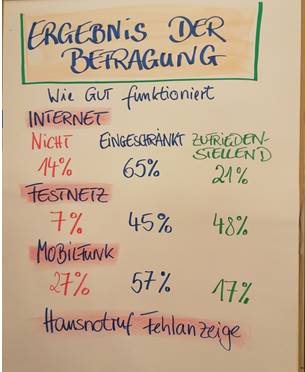 ERGEBNIS DER
BEFRAGUNG
Wie GUT funktioniert
INTERNET
NICHT EINGESCHRÄNKT ZUFRIEDEN-
STELLEND
14% 65% 21%
FESTNETZ
7% 45% 48%
MOBILFUNK
27% 57% 17%
Hausnotruf Fehlanzeige